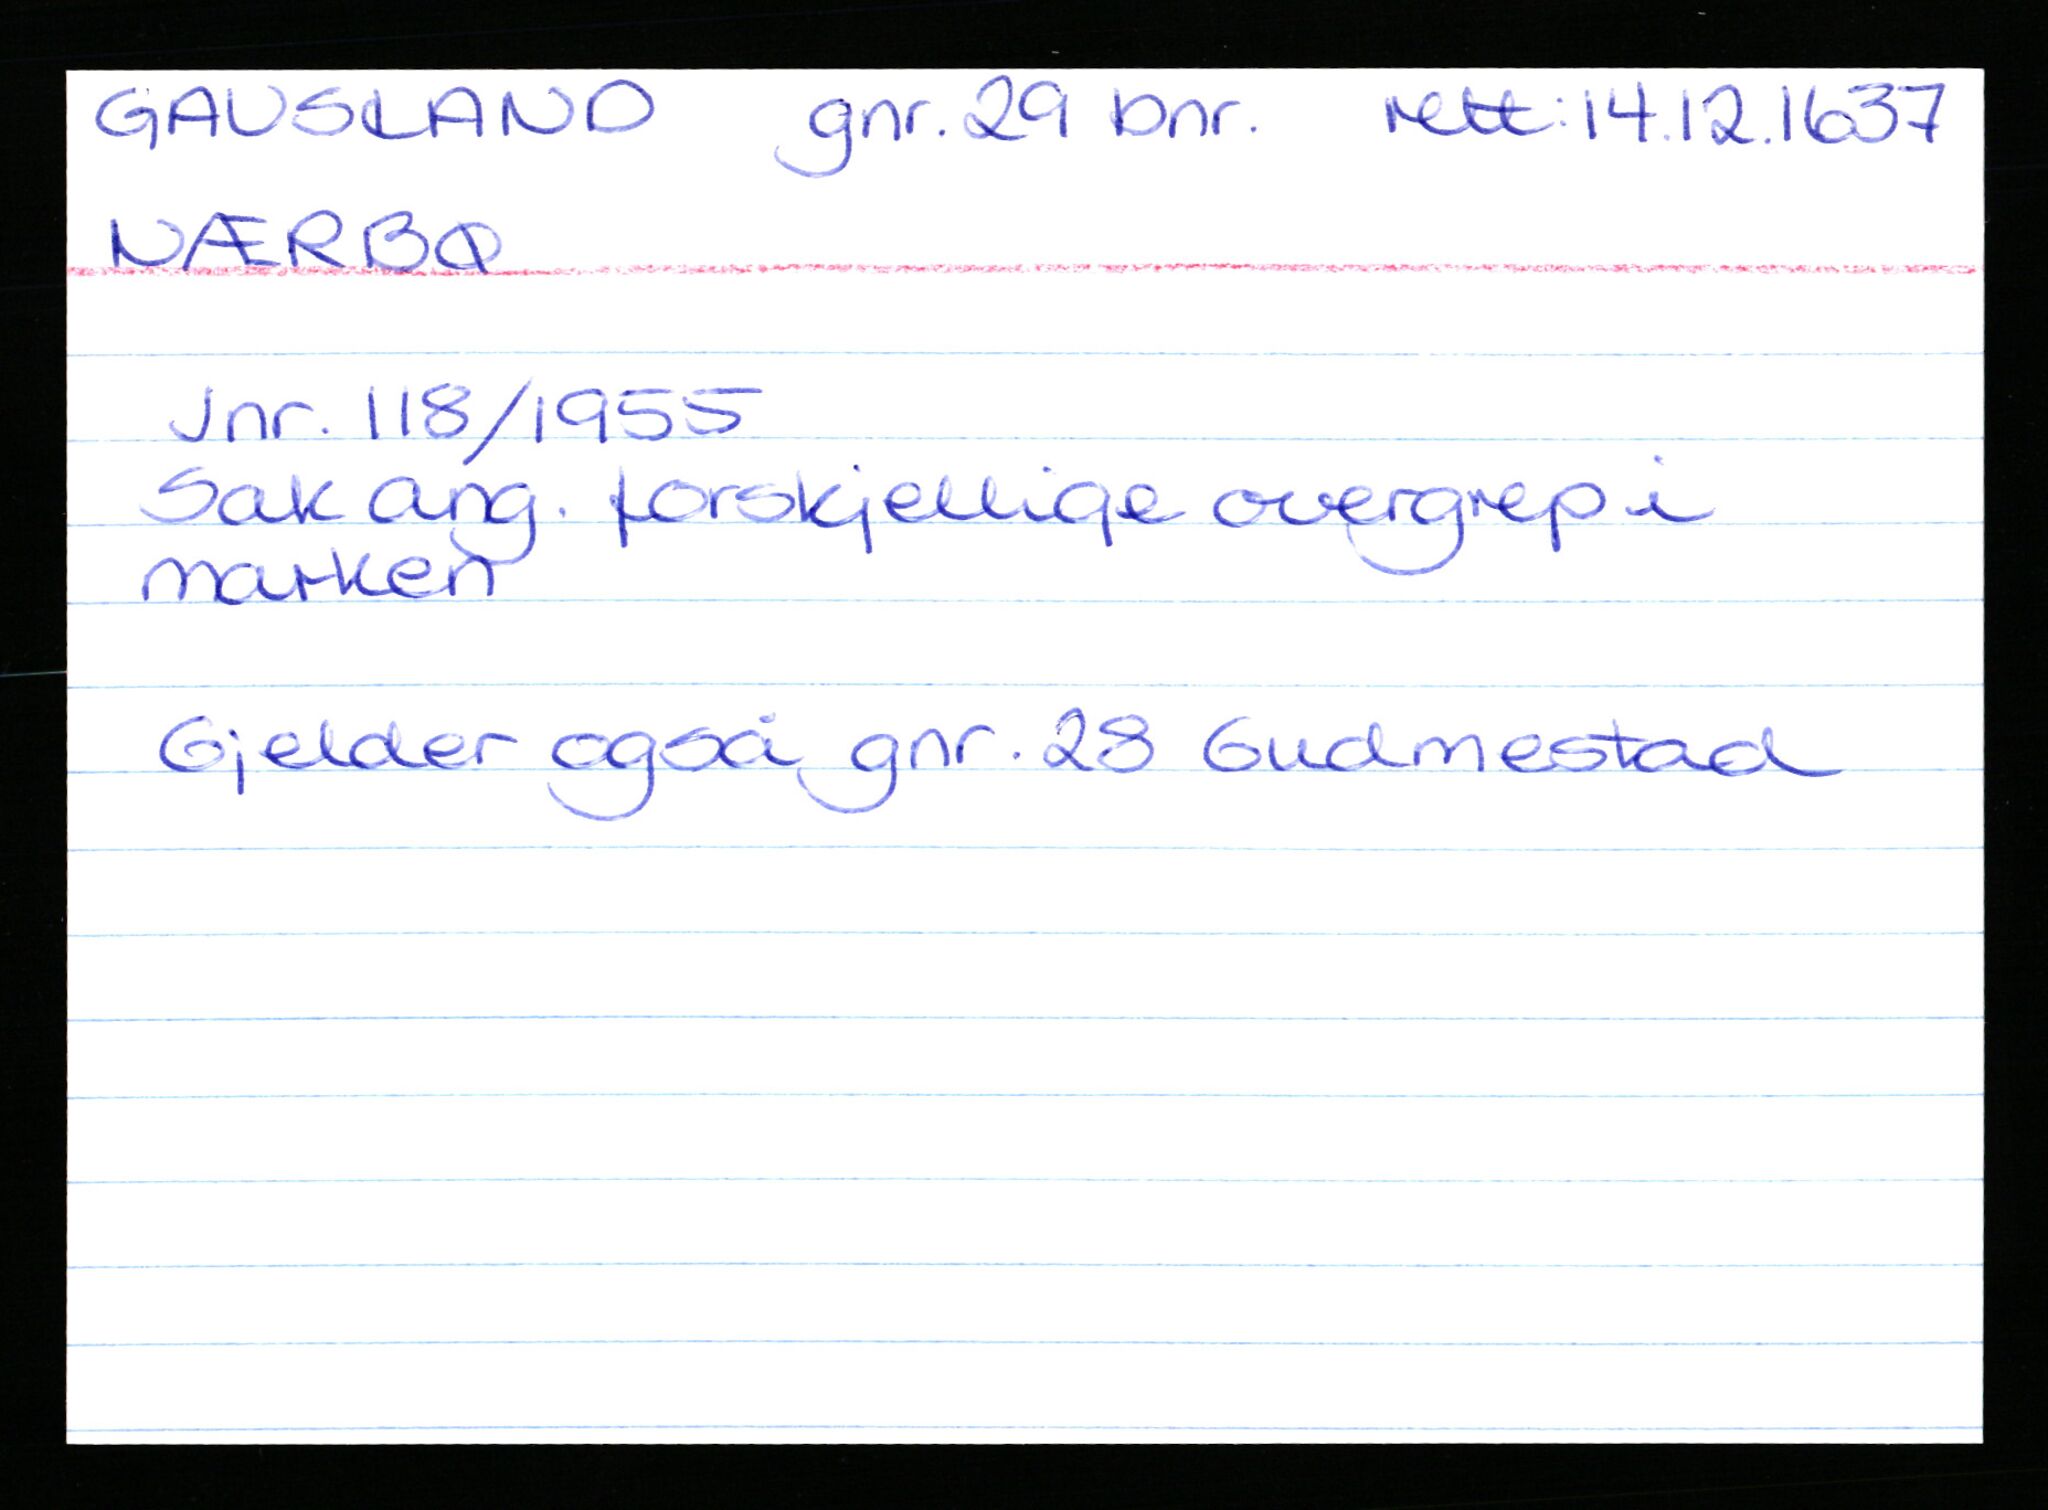 GAUSLAND gnr. 29 bnr. rett: 14.12.1637
NÆRBØ
Jnr. 118/1955
Sak ang. forskjellige overgrep i
marken
Gjelder også gnr. 28 Gudmestad